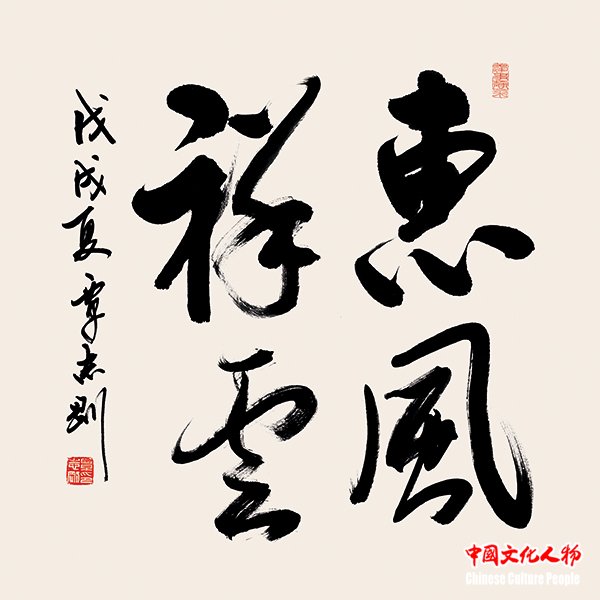 惠風
祥雲
戊戌夏覃志剛
中國文化人物
Chinese Culture People